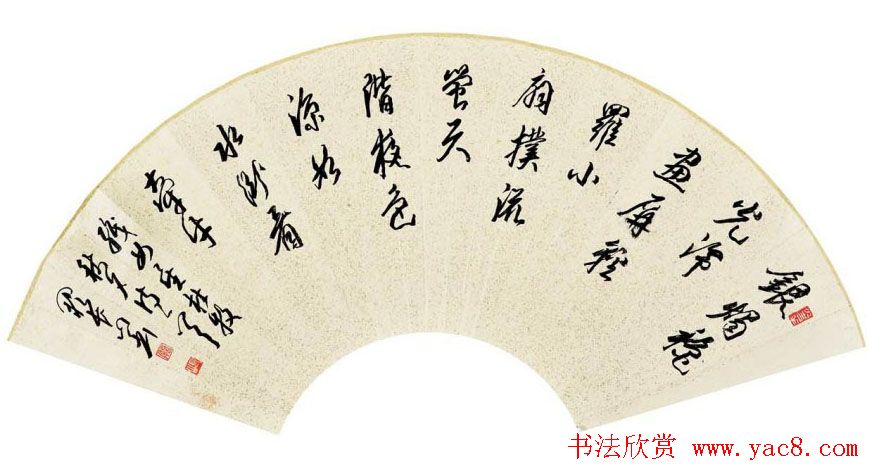 銀燭穐
光冷
畫屏輕
羅小
扇撲流
螢天
階夜色
涼如
水卧看
牽牛
織女星 杜牧
书法欣赏 www.yac8.com